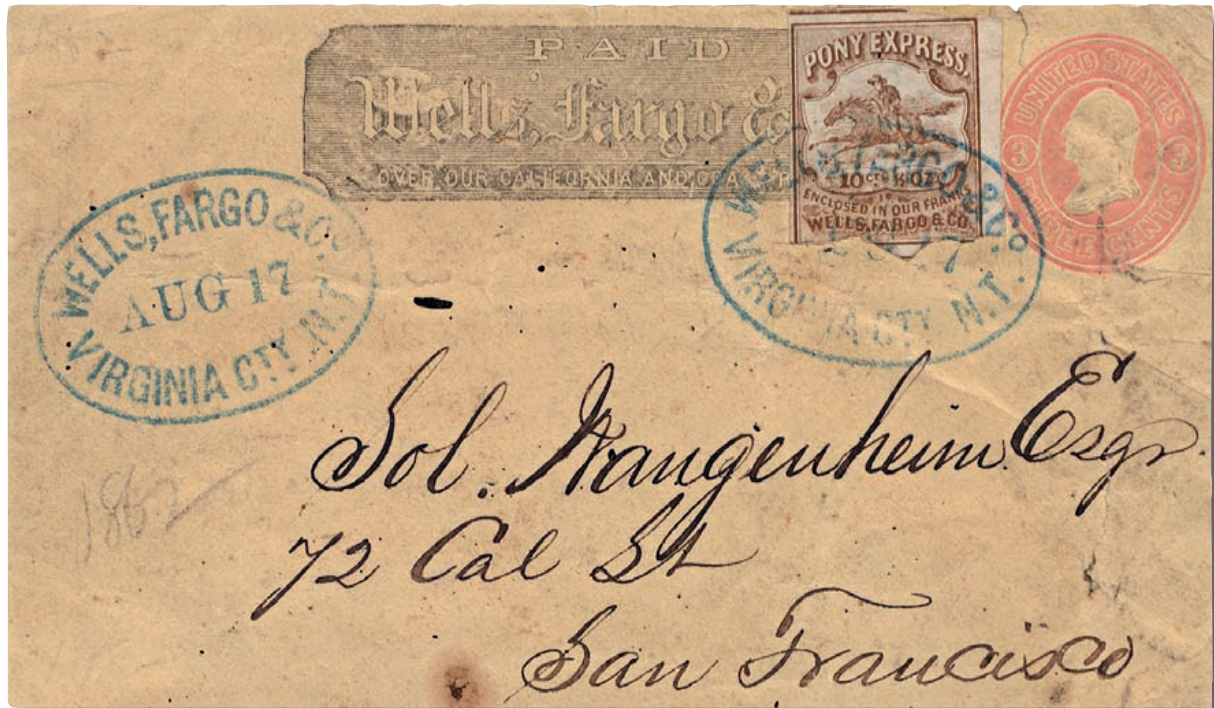 PAID
Wells, Fargo &
OVER OUR CALIFORNIA AND
PONY EXPRESS,
10 cts ½ oz
ENCLOSED IN OUR FRANKS
WELLS, FARGO & CO.
UNITED STATES
3 3
THREE CENTS
WELLS, FARGO & Co.
AUG 17
VIRGINIA CTY. N.T.
WELLS, FARGO & Co.
17
VIRGINIA CTY. N.T.
1862
Sol. Wangenheim Esqr.
72 Cal St
San Francisco